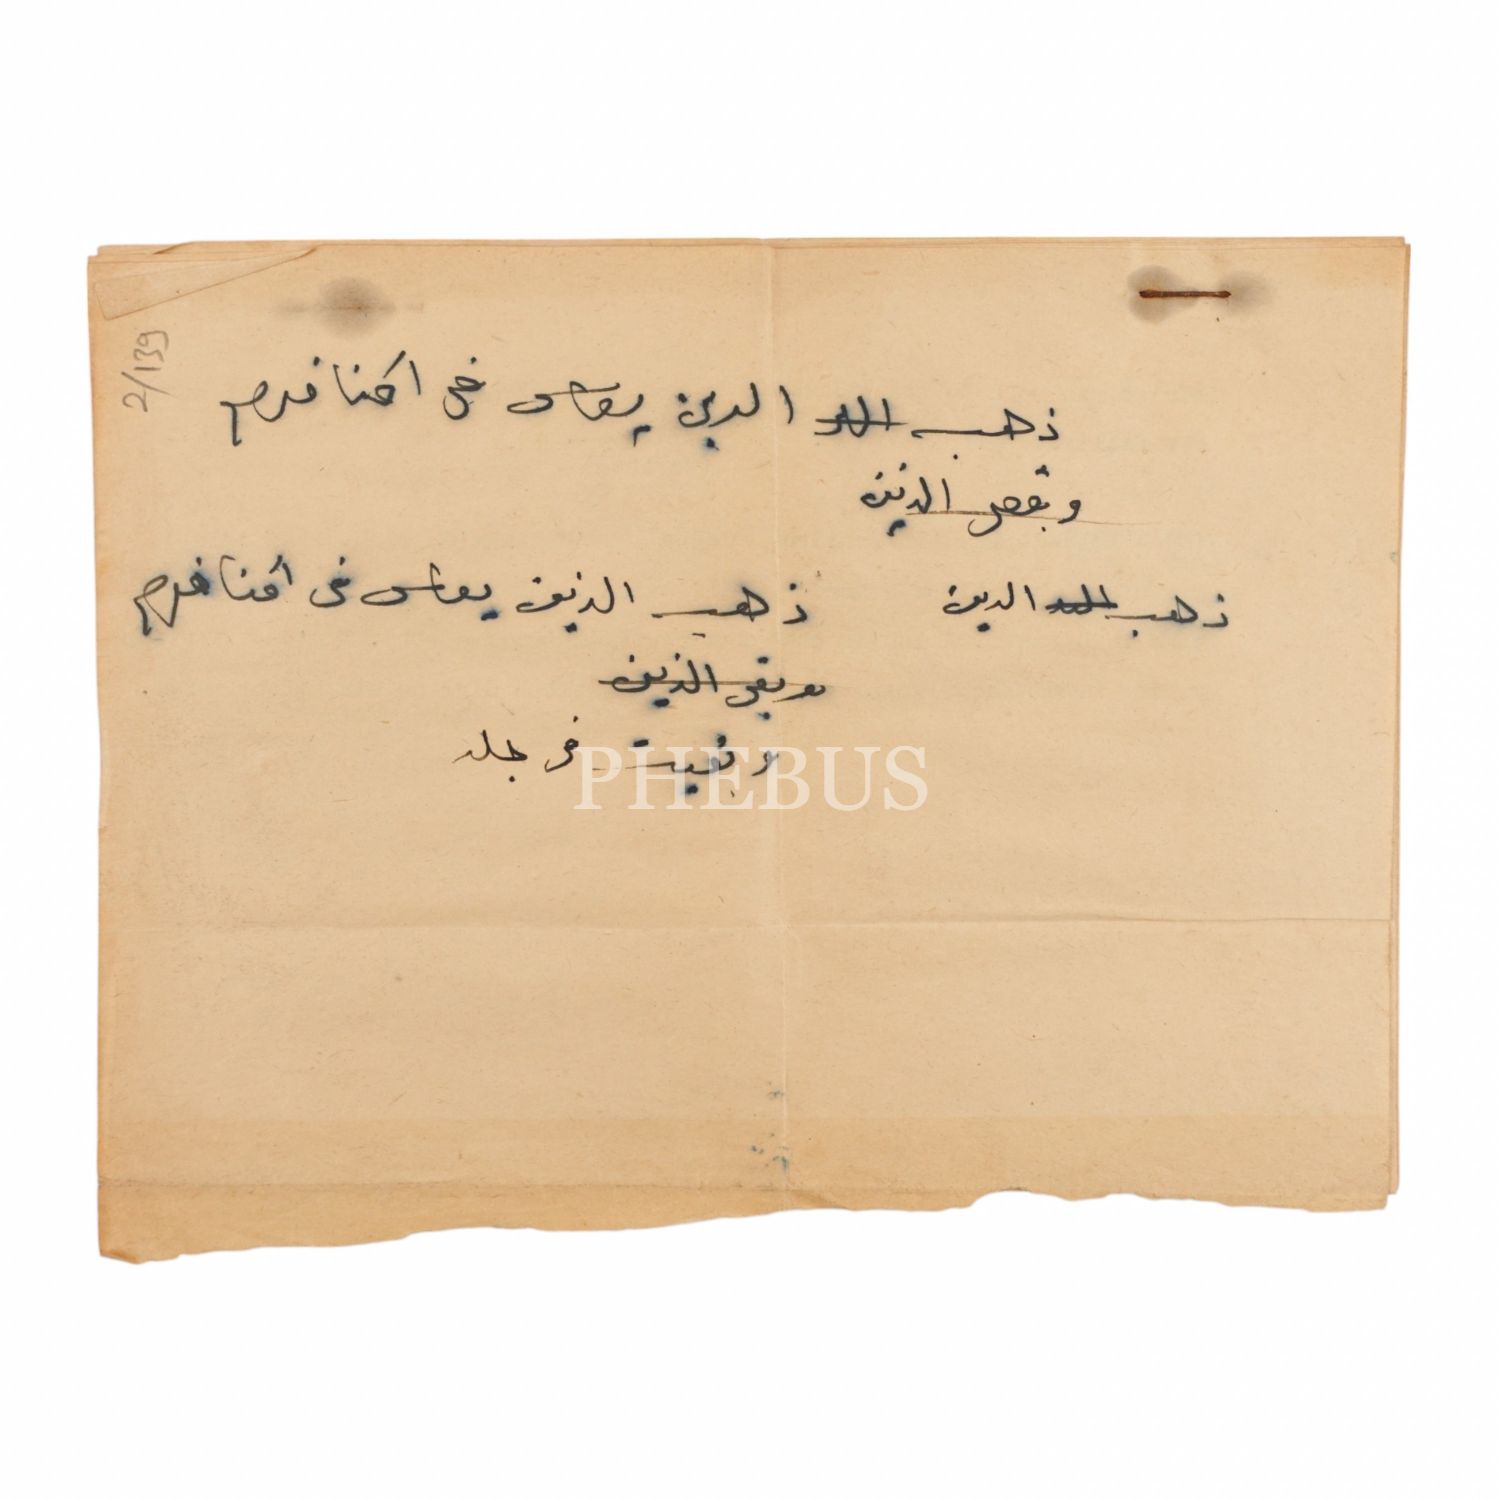 2/139
ذهب الد الذين يعاش في اكنافهم
وبقى الذين
ذهب الد الذين
ذهب الذين يعاش فى اكنافهم
وبقى الذين
وبقيت فى جلد
PHEBUS